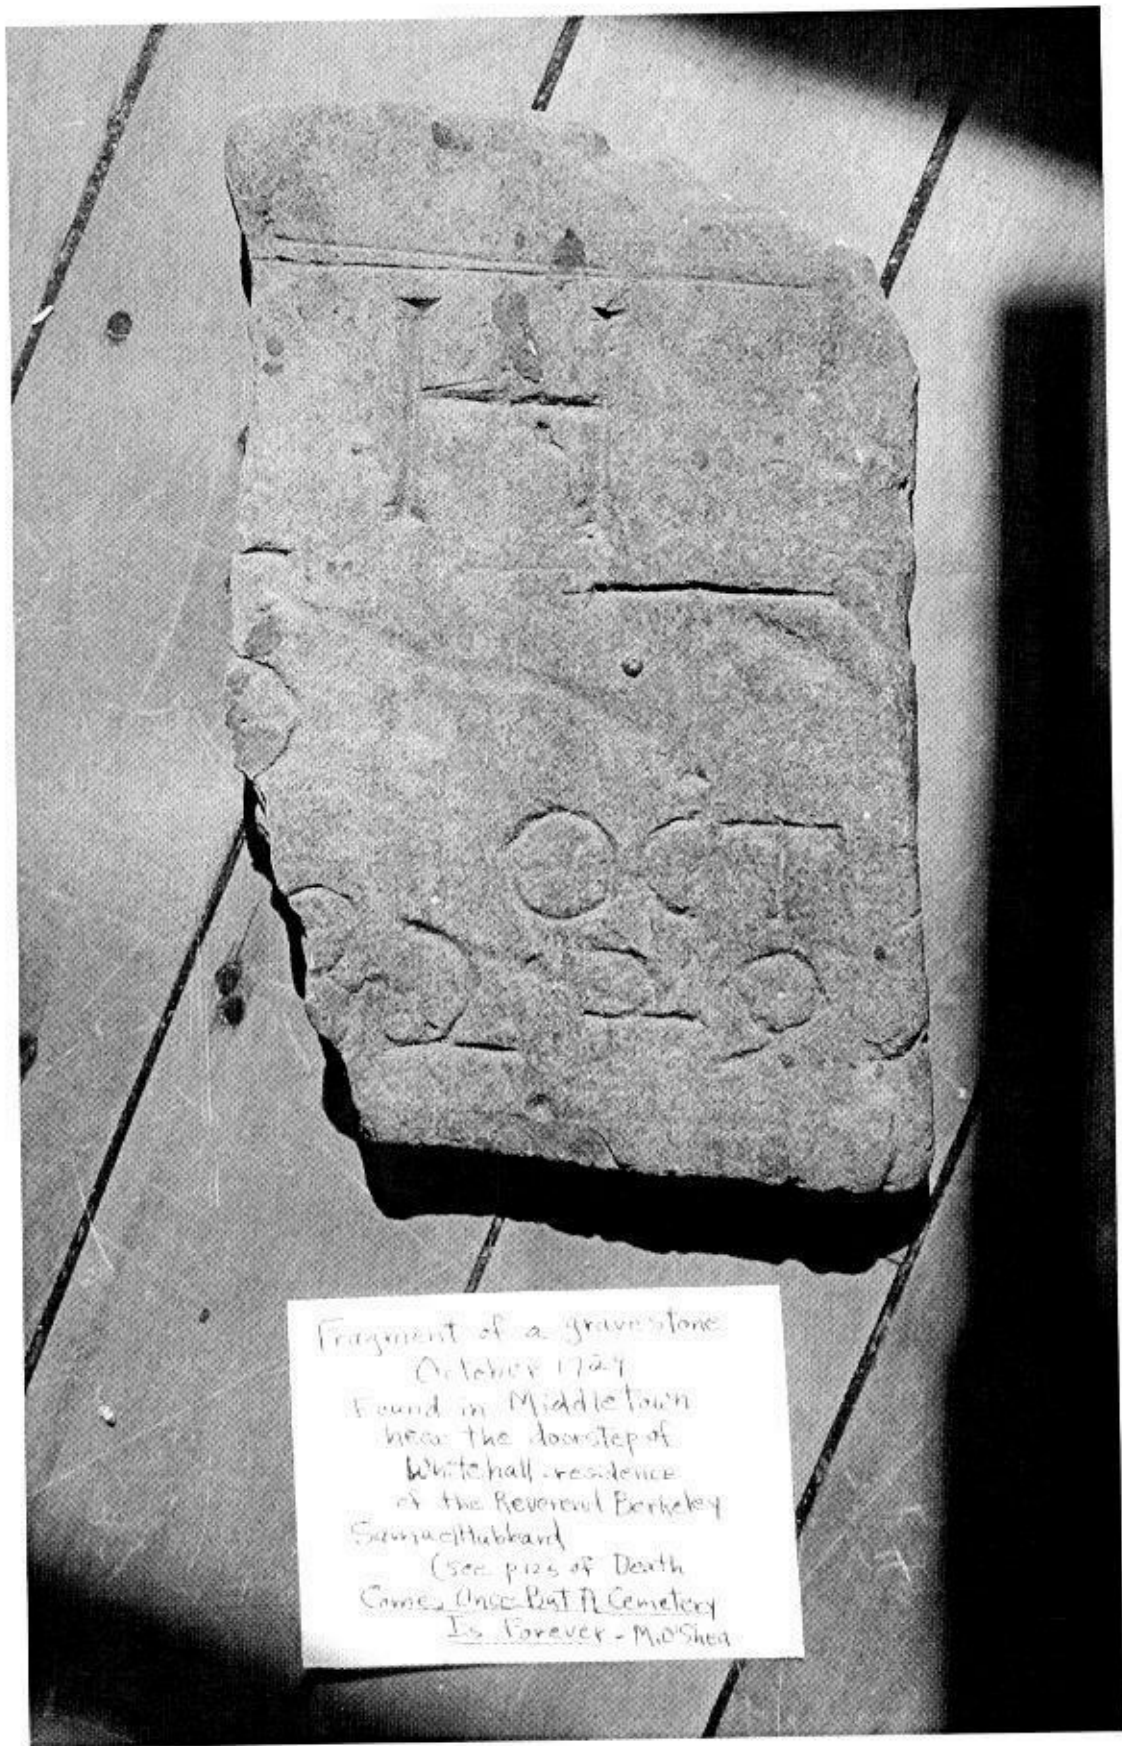 H
OCT
Fragment of a gravestone
October 1729
Found in Middletown
near the doorstep of
Whitehall-residence
of the Reverend Berkeley
Samuel Hubbard
(see p125 of Death
Comes Once But A Cemetery
Is Forever - M.O'Shea